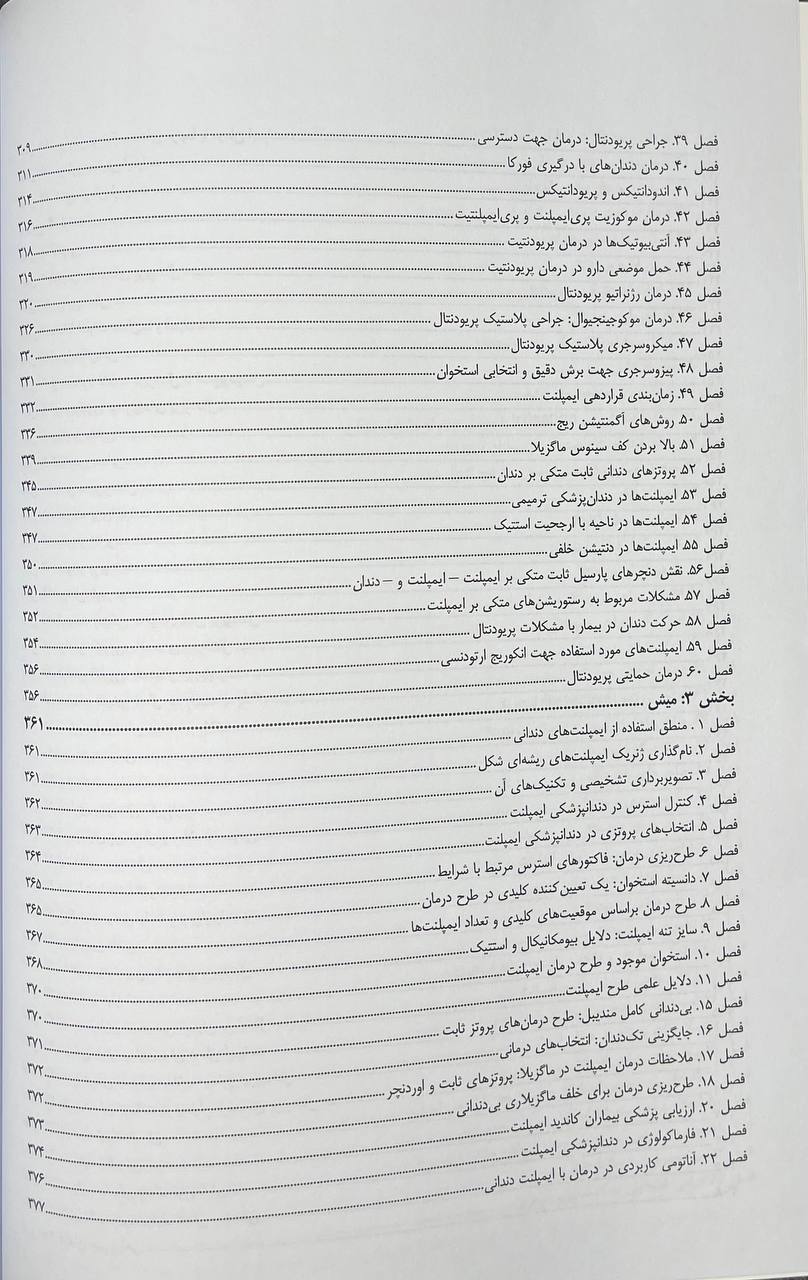 فصل ۳۹. جراحی پریودنتال: درمان جهت دسترسی ۳۰۹
فصل ۴۰. درمان دندان‌های با درگیری فورکا ۳۱۱
فصل ۴۱. اندودانتیکس و پریودانتیکس ۳۱۴
فصل ۴۲. درمان موکوزیت پری‌ایمپلنت و پری‌ایمپلنتیت ۳۱۶
فصل ۴۳. آنتی‌بیوتیک‌ها در درمان پریودنتیت ۳۱۸
فصل ۴۴. حمل موضعی دارو در درمان پریودنتیت ۳۱۹
فصل ۴۵. درمان رژنراتیو پریودنتال ۳۲۰
فصل ۴۶. درمان موکوجینجیوال: جراحی پلاستیک پریودنتال ۳۲۶
فصل ۴۷. میکروسرجری پلاستیک پریودنتال ۳۳۰
فصل ۴۸. پیزوسرجری جهت برش دقیق و انتخابی استخوان ۳۳۱
فصل ۴۹. زمان‌بندی قراردهی ایمپلنت ۳۳۲
فصل ۵۰. روش‌های آگمنتیشن ریج ۳۳۶
فصل ۵۱. بالا بردن کف سینوس ماگزیلا ۳۳۹
فصل ۵۲. پروتزهای دندانی ثابت متکی بر دندان ۳۴۵
فصل ۵۳. ایمپلنت‌ها در دندان‌پزشکی ترمیمی ۳۴۷
فصل ۵۴. ایمپلنت‌ها در ناحیه با ارجحیت استتیک ۳۴۷
فصل ۵۵. ایمپلنت‌ها در دنتیشن خلفی ۳۵۰
فصل۵۶. نقش دنچرهای پارسیل ثابت متکی بر ایمپلنت – ایمپلنت و –دندان ۳۵۱
فصل ۵۷. مشکلات مربوط به رستوریشن‌های متکی بر ایمپلنت ۳۵۲
فصل ۵۸. حرکت دندان در بیمار با مشکلات پریودنتال ۳۵۴
فصل ۵۹. ایمپلنت‌های مورد استفاده جهت انکوریج ارتودنسی ۳۵۶
فصل ۶۰. درمان حمایتی پریودنتال ۳۵۶
بخش ۳: میش ۳۶۱
فصل ۱. منطق استفاده از ایمپلنت‌های دندانی ۳۶۱
فصل ۲. نام‌گذاری ژنریک ایمپلنت‌های ریشه‌ای شکل ۳۶۱
فصل ۳. تصویربرداری تشخیصی و تکنیک‌های آن ۳۶۲
فصل ۴. کنترل استرس در دندانپزشکی ایمپلنت ۳۶۳
فصل ۵. انتخاب‌های پروتزی در دندانپزشکی ایمپلنت ۳۶۴
فصل ۶. طرح‌ریزی درمان: فاکتورهای استرس مرتبط با شرایط ۳۶۵
فصل ۷. دانسیته استخوان: یک تعیین‌کننده کلیدی در طرح درمان ۳۶۵
فصل ۸. طرح درمان براساس موقعیت‌های کلیدی و تعداد ایمپلنت‌ها ۳۶۷
فصل ۹. سایز تنه ایمپلنت: دلایل بیومکانیکال و استتیک ۳۶۸
فصل ۱۰. استخوان موجود و طرح درمان ایمپلنت ۳۷۰
فصل ۱۱. دلایل علمی طرح ایمپلنت ۳۷۰
فصل ۱۵. بی‌دندانی کامل مندیبل: طرح درمان‌های پروتز ثابت ۳۷۱
فصل ۱۶. جایگزینی تک‌دندان: انتخاب‌های درمانی ۳۷۲
فصل ۱۷. ملاحظات درمان ایمپلنت در ماگزیلا: پروتزهای ثابت و اوردنچر ۳۷۲
فصل ۱۸. طرح‌ریزی درمان برای خلف ماگزیلاری بی‌دندانی ۳۷۳
فصل ۲۰. ارزیابی پزشکی بیماران کاندید ایمپلنت ۳۷۴
فصل ۲۱. فارماکولوژی در دندانپزشکی ایمپلنت ۳۷۶
فصل ۲۲. آناتومی کاربردی در درمان با ایمپلنت دندانی ۳۷۷